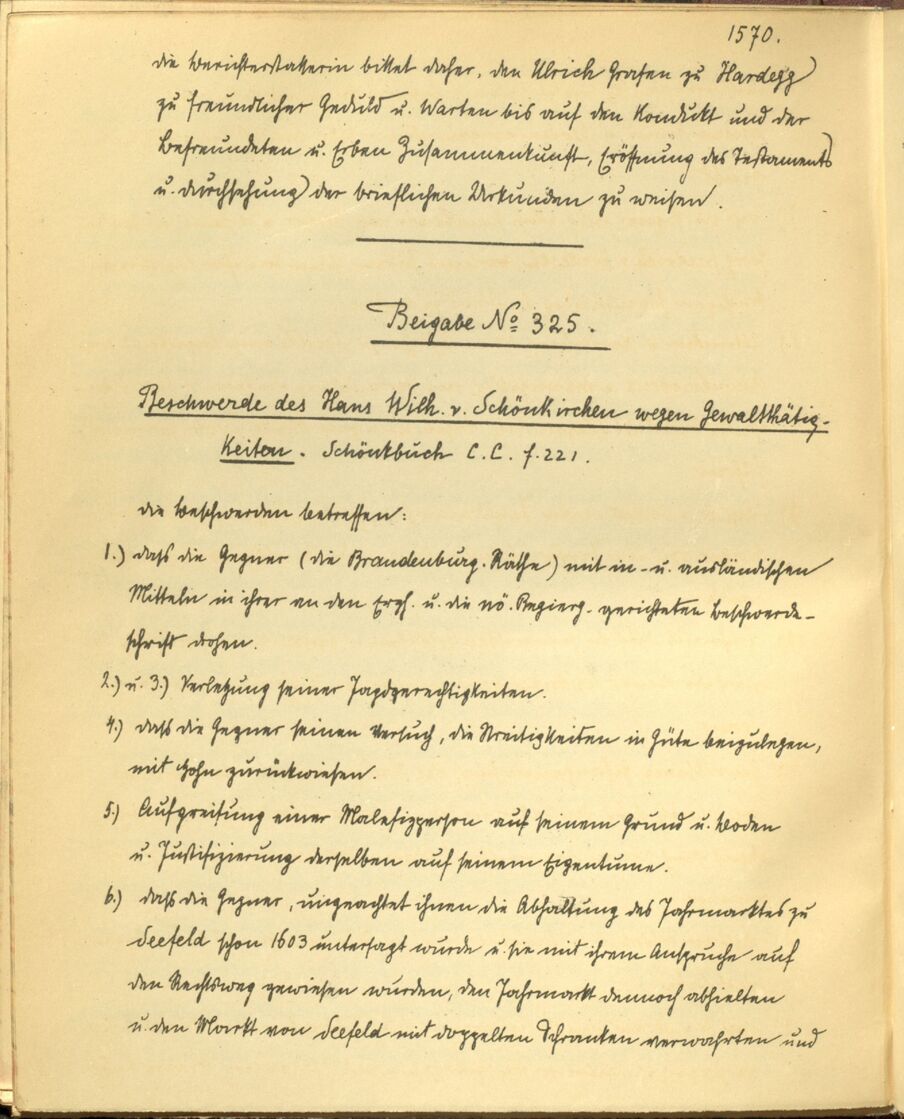 1570.
die Berichterstatterin bittet daher, den Ulrich Grafen zu Hardegg
zu freundlicher Geduld u. Warten bis auf den Kondukt und der
Befreundeten u. Erben Zusammenkunft, Eröffnung des Testaments
u. Durchsehung der brieflichen Urkunden zu weisen.
Beigabe No 325.
Beschwerde des Hans Wilh. v. Schönkirchen wegen Gewaltthätig-
keiten. Schönkbuch C.C. f. 221.
die Beschwerden betreffen:
1.) daß die Gegner (die Brandenburg. Räthe) mit in- u. ausländischen
Mitteln in ihrer an den Erzh. u. die nö. Regierg. gerichteten Beschwerde-
schrift drohen.
2.) u. 3.) Verletzung seiner Jagdgerechtigkeiten.
4.) daß die Gegner seinen Versuch, die Streitigkeiten in Güte beizulegen,
mit Hohn zurückwiesen.
5.) Aufgreifung einer Malefizperson auf seinem Grund u. Boden
u. Justifizierung derselben auf seinem Eigentume.
6.) daß die Gegner, ungeachtet ihnen die Abhaltung des Jahrmarktes zu
Seefeld schon 1603 untersagt wurde u. sie mit ihrem Anspruche auf
den Rechtsweg gewiesen wurden, den Jahrmarkt dennoch abhielten
u. den Markt von Seefeld mit doppelten Schranken verwahrten und